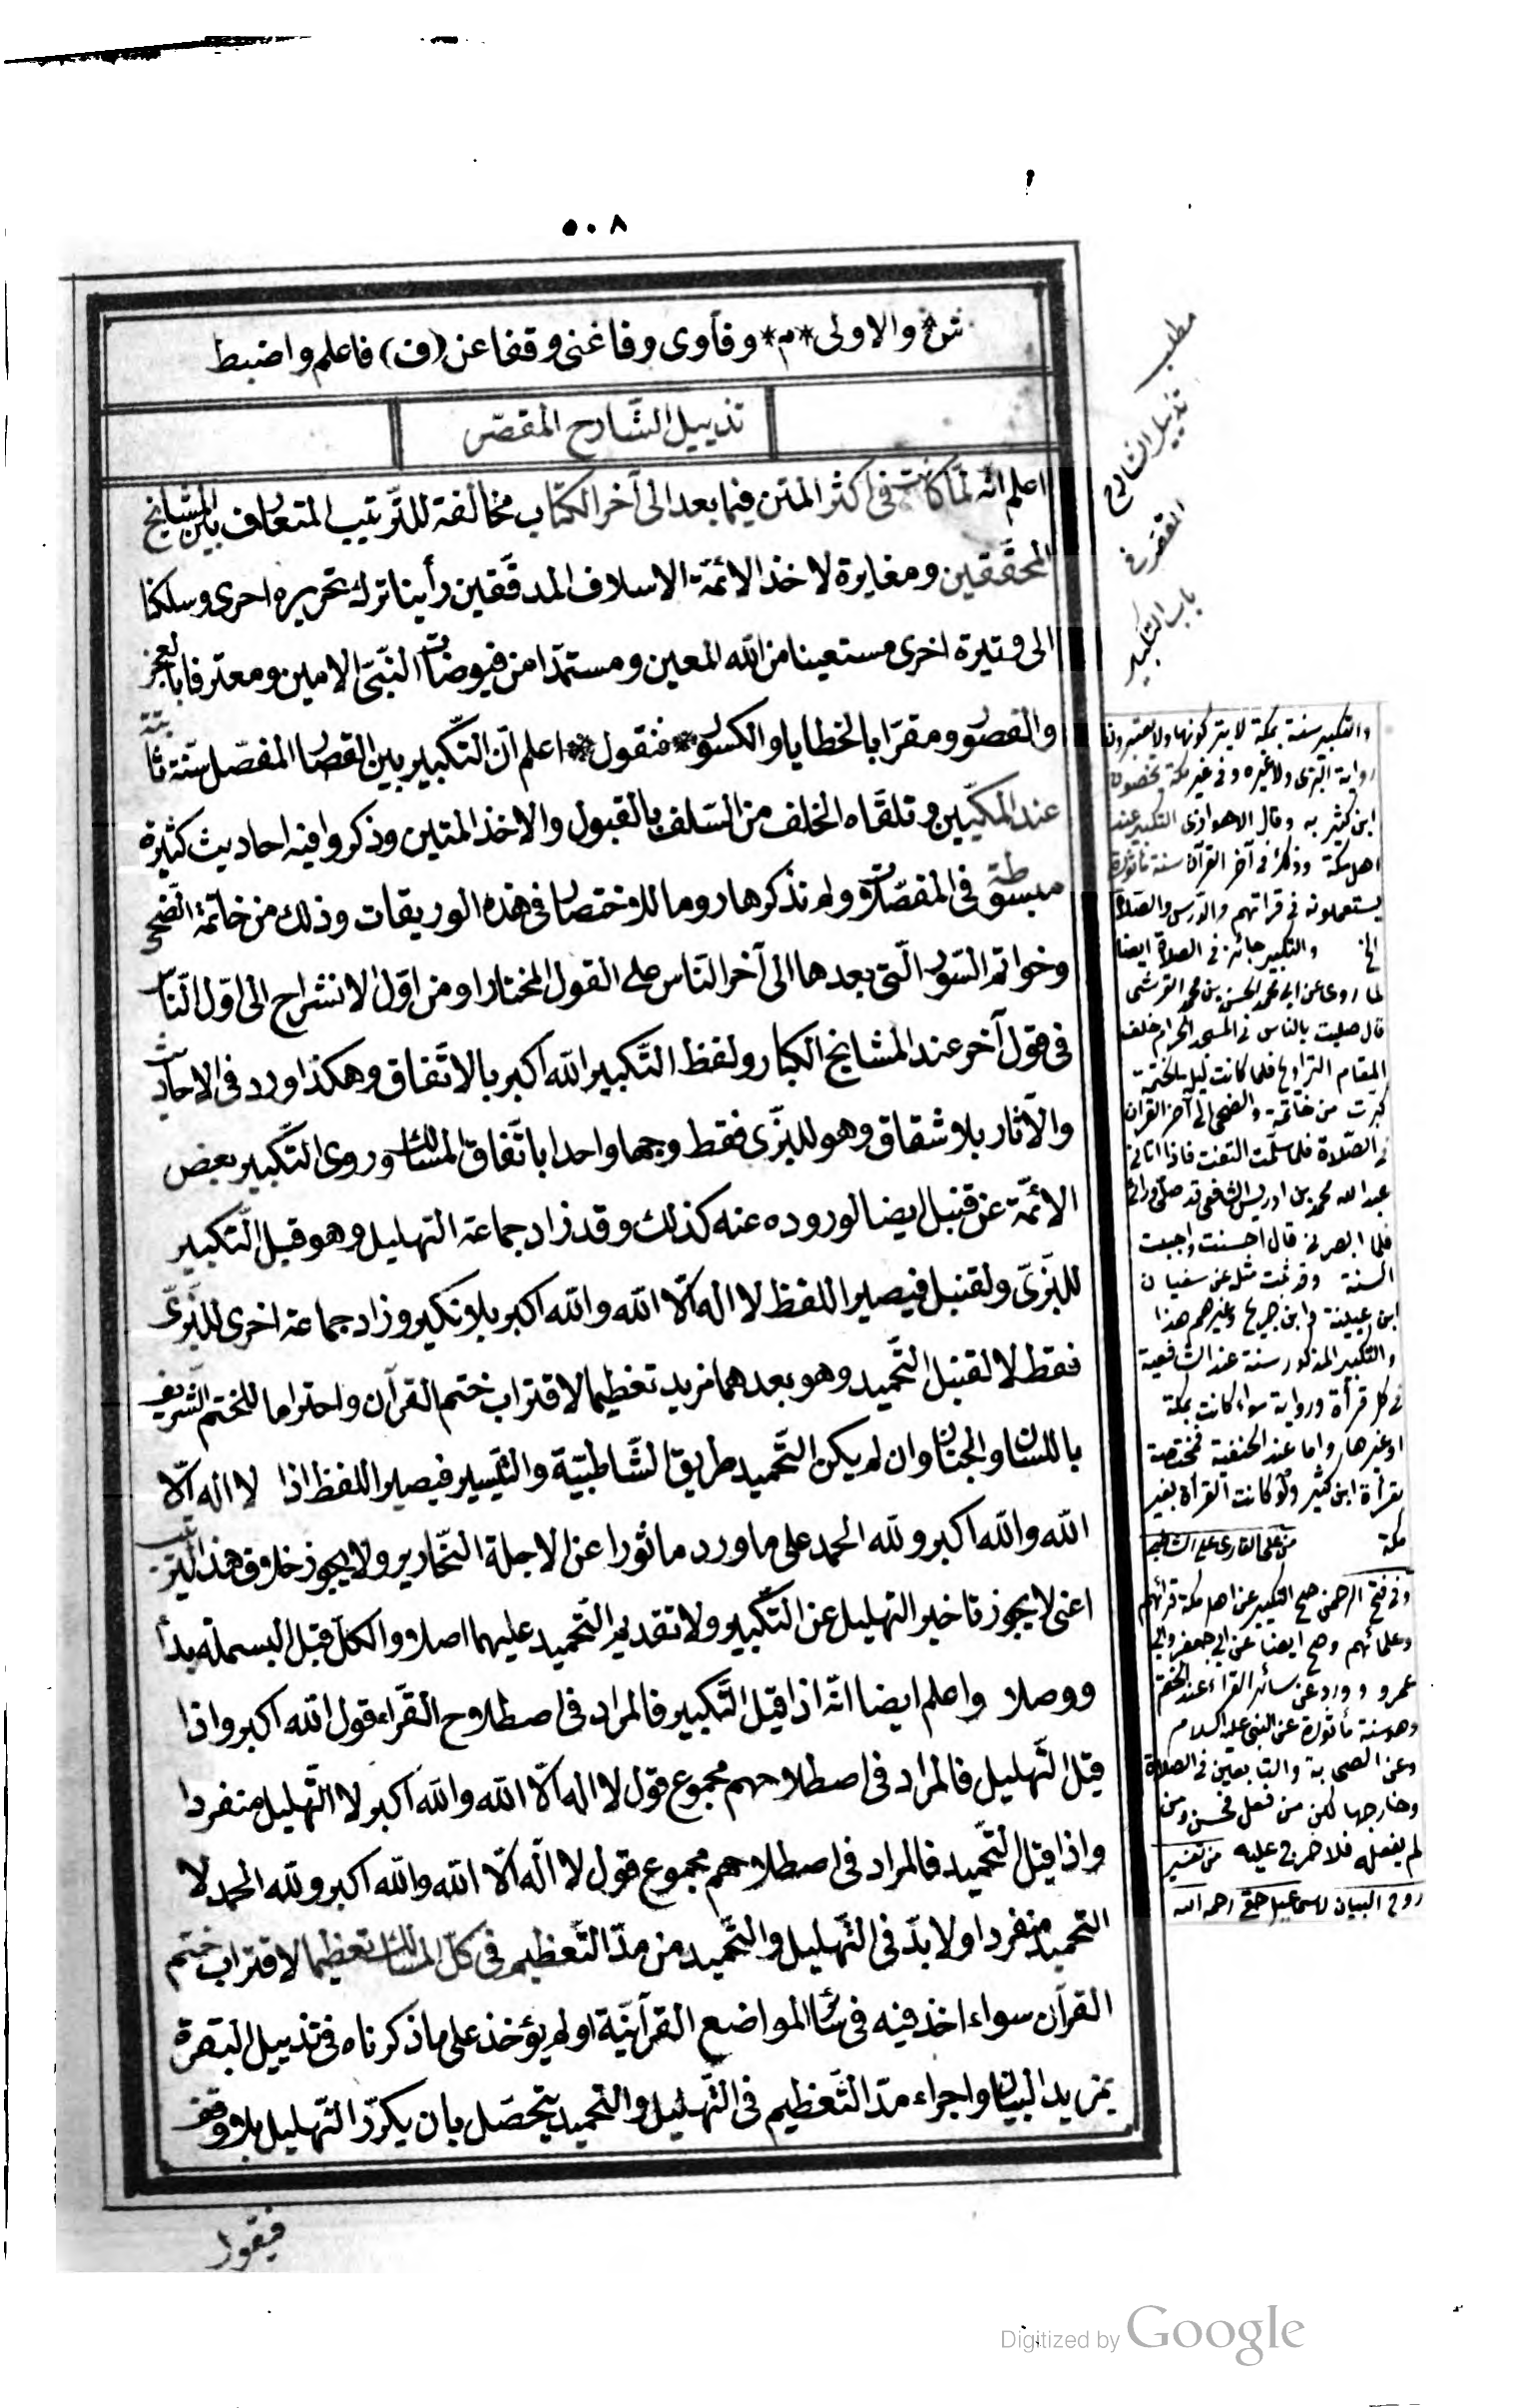 ٥٠٨
ش* والاولى *م* وفآوى وفاغنى وقفا عن (ف) فاعلم واضبط
تذييل الشّارح المقصّر
اعلم انّه لمّا كانت فى اكثر المتن فيما بعد الى آخر الكتاب مخالفة للتّرتيب المتعارف بين المشايخ
المحقّقين ومغايرة لاخذ الائمّة الاسلاف المدقّقين رأينا ترك تحريره احرى وسلكنا
الى وتيرة اخرى مستعينا من الله المعين ومستمدّا من فيوضات النّبىّ الامين ومعترفا بالعجز
والقصور ومقرّا بالخطايا والكسور * فنقول * اعلم انّ التّكبير بين القصار المفصّل سنّة ثابتة
عند المكّيّين وتلقّاه الخلف من السّلف بالقبول والاخذ المتين وذكروا فيه احاديث كثيرة
مبسوطة فى المفصّلات ولم نذكرها روما للاختصار فى هذه الوريقات وذلك من خاتمة الضّحى
وخواتم السّور الّتى بعدها الى آخر النّاس على القول المختار او من اوّل الانشراح الى اوّل النّاس
فى قول آخر عند المشايخ الكبار ولفظ التّكبير الله اكبر بالاتّفاق وهكذا ورد فى الاحاديث
والآثار بلا شقاق وهو للبزّى فقط وجها واحدا باتّفاق المسالك وروى التّكبير بعض
الائمّة عن قنبل ايضا لوروده عنه كذلك وقد زاد جماعة التهليل وهو قبل التّكبير
للبزّىّ ولقنبل فيصير اللفظ لا اله الّا الله والله اكبر بلا نكير وزاد جماعة اخرى للبزّىّ
فقط لا لقنبل التّحميد وهو بعدهما مزيد تعظيما لاقتراب ختم القرآن واحتراما للختم الشّريف
باللسان والجنان وان لم يكن التّحميد طريق الشّاطبيّة والتّيسير فيصير اللفظ اذا لا اله الّا
الله والله اكبر ولله الحمد على ما ورد مأثورا عن الاجلة النّحارير ولا يجوز خلاف هذا التّرتيب
اعنى لا يجوز تاخير التهليل عن التّكبير ولا تقديم التّحميد عليهما اصلا والكلّ قبل البسملة بدأ
ووصلا واعلم ايضا انّه اذا قيل التّكبير فالمراد فى اصطلاح القرّاء قول الله اكبر واذا
قيل التّهليل فالمراد فى اصطلاحهم مجموع قول لا اله الّا الله والله اكبر لا التّهليل منفردا
واذا قيل التّحميد فالمراد فى اصطلاحهم مجموع قول لا اله الّا الله والله اكبر ولله الحمد لا
التحميد منفردا ولا بدّ فى التّهليل والتّحميد من مدّ التّعظيم فى كلّ المسالك تعظيما لاقتراب ختم
القرآن سواء اخذ فيه فى سائر المواضع القرآنيّة او لم يؤخذ على ما ذكرناه فى تذييل البقرة
بمزيد البيان واجراء مدّ التّعظيم فى التّهليل والتّحميد يتحصّل بان يكرّر التّهليل بلا وقف
فيقول
مطلب
تذييل الشارح
المقصر فى
باب التكبير
والتكبير سنة بمكة لا يتركونها ولا يعتبرون
رواية البزى ولا غيره وفى غير مكة يخصون
ابن كثير به وقال الاهوازى التكبير عند
اهل مكة وذلك فى آخر القرآن سنة مأثورة
يستعملونه فى قرائتهم والدرس والصلاة
الخ والتكبير جائز فى الصلاة ايضا
لما روى عن ابى محمد الحسن بن محمد القرشى
قال صليت بالناس فى المسجد الحرام خلف
المقام التراويح فلما كانت ليلة الختمة
كبرت من خاتمة والضحى الى آخر القرآن
فى الصلاة فلما سلمت التفت فاذا انا بابى
عبد الله محمد بن ادريس الشافعى قد صلى ورائى
فلما ابصرنى قال احسنت واصبت
السنة وقد ثبت مثله عن سفيان
ابن عيينة وابن جريج وغيرهم هذا
والتكبير المذكور سنة عند الشافعية
فى كل قرأة ورواية سواء كانت بمكة
او غيرها واما عند الحنفية فمختصة
بقرأة ابن كثير ولو كانت القرأة بغير
مكة من على القارى على الشاطبية
وفى فتح الرحمن صح التكبير عن اهل مكة قرائهم
وعلمائهم وصح ايضا عن ابى جعفر وابى
عمرو وورد عن سائر القراء عند الختم
وهو سنة مأثورة عن النبى عليه السلام
وعن الصحابة والتابعين فى الصلاة
وخارجها لكن من فعل فحسن ومن
لم يفعله فلا حرج عليه من تفسير
روح البيان لاسماعيل حقى رحمه الله
Digitized by Google